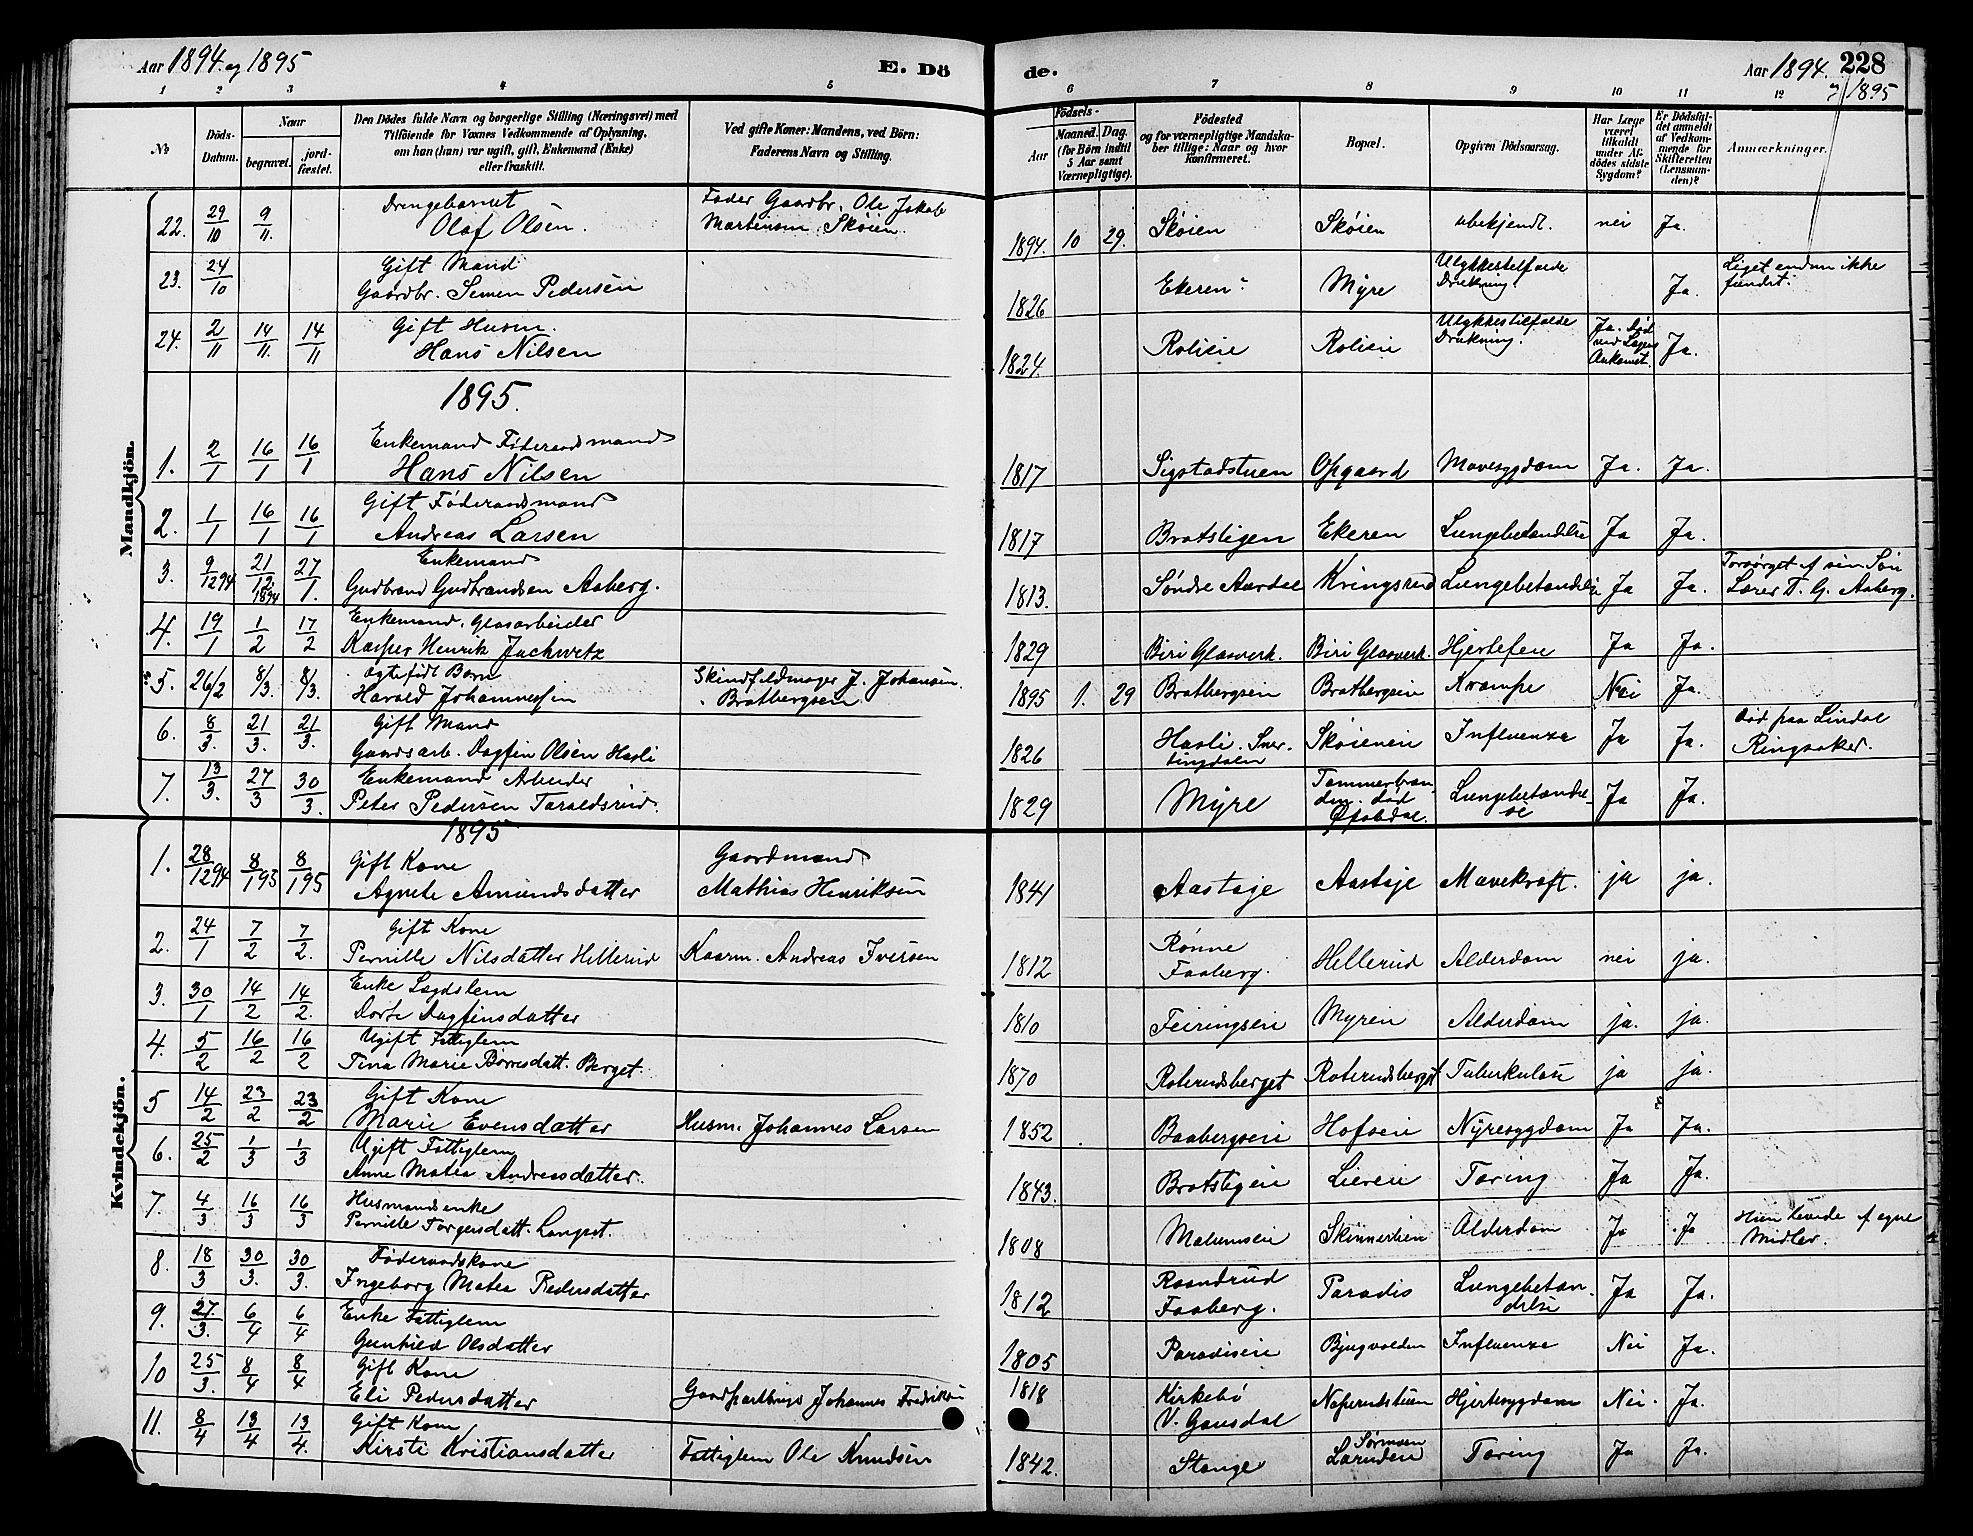 Aar 1894 og 1895
E. Dö
de.
Aar 1894. 228
og 1895
1 2 3 4 5 6 7 8 9 10 11 12
No
Döds-
Datum.
Naar
begravet.
jord-
fæstet.
Den Dödes fulde Navn og borgerlige Stilling (Næringsvei) med
Tilföiende for Voxnes Vedkommende af Oplysning,
om han (hun) var ugift, gift, Enkemand (Enke)
eller fraskilt.
Ved gifte Koner: Mandens, ved Börn:
Faderens Navn og Stilling.
Födsels-
Aar
Maaned. Dag.
(for Börn indtil
5 Aar samt
Værnepligtige).
Födested
og for værnepligtige Mandska-
ber tillige: Naar og hvor
Konfirmeret.
Bopæl.
Opgiven Dödsaarsag.
Har Læge
været
tilkaldt
under Af-
dödes sidste
Sygdom?
Er Dödsfal-
det anmeldt
af Vedkom-
mende for
Skifteretten
(Lensman-
den)?
Anmærkninger.
Mandkjön.
22. 29/10 9/11. Drengebarnet Olaf Olsen. Fader Gaardbr. Ole Jakob Martensen Skøien. 1894 10 29. Skøien Skøien ubekjendt. nei Ja.
23. 24/10 Gift Mand Gaardbr. Semen Pedersen 1826 Ekeren Myre Ulykkestilfælde Drukning. Ja. Liget endnu ikke fundet.
24. 2/11 14/11. 14/11 Gift Husm. Hans Nilsen 1824. Rolieie Rolieie Ulykkestilfælde Drukning. Ja. død ved Lægens Ankomst. Ja.
1895.
1. 2/1 16/1 16/1 Enkemand Føderaadsmand Hans Nilsen 1817 Sigstadstuen Opgaard Mavesygdom Ja. Ja.
2. 1/1 16/1 16/1 Gift Føderaadsmand Andreas Larsen 1817 Bratsligen Ekeren Lungebetændelse Ja Ja.
3. 9/12 94 21/12 1894 27/1. Enkemand Gudbrand Gudbrandsen Aaberg. 1813. Søndre Aurdal Kringsrud Lungebetændelse Ja Ja. Forsørget af sin Søn Lærer T. G. Aaberg.
4. 19/1 1/2 17/2 Enkemand, Glasarbeider Kasper Henrik Jachwitz 1829 Biri Glasverk. Biri Glasverk. Hjertefeil Ja Ja.
5. 26/2 8/3. 8/3. Ægtefødt Barn Harald Johannessen Skindfeldmager J. Johansen. Bratbergseien 1895 1. 29 Bratbergseien Bratbergseien Krampe Nei Ja.
6. 8/3. 21/3. 21/3. Gift Mand Gaardsarb. Dagfin Olsen Hasli 1826 Hasli. Snertingdalen Skøieneie Influenza Ja Ja. Død paa Lindal Ringsaker.
7. 13/3. 27/3 30/3. Enkemand Arbeider Peter Pedersen Taraldsrud. 1829 Myre Lungebetændelse Ja Ja.
1895
Kvindekjön.
1. 28/12 94 8/1 95 8/1 95 Gift Kone Agnete Amundsdatter Gaardmand Mathias Henriksen 1841 Aastøje Aastøje Mavekræft. ja ja.
2. 24/1 7/2 7/2. Gift Kone Pernille Nilsdatter Hellerud Kaarm. Andreas Iversen 1812 Rønne Faaberg. Hellerud Alderdom nei ja.
3. 30/1 14/2 14/2. Enke Lægdslem Dorte Dagfinsdatter 1810 Feiringseie Myren Alderdom ja. ja.
4. 5/2 16/2 16/2 Ugift Fattiglem Tina Marie Børresdatt. Berget. 1870 Roterudsberget Roterudsberget Tuberkulose ja ja.
5 14/2 23/2 23/2 Gift Kone Marie Evensdatter Husm. Johannes Larsen 1852 Baabergseie Hofseie Nyresygdom Ja Ja.
6. 25/2 1/3 1/3 Ugift Fattiglem Anne Matea Andreasdatter. 1843. Bratsligeie Liereie Tæring Ja Ja.
7. 4/3 16/3 16/3 Husmandsenke Pernille Torgersdatt. Langset. 1808 Malumseie Skinnerlien Alderdom Ja Ja Hun levede af egne Midler.
8. 18/3 30/3. 30/3. Føderaadskone Ingeborg Matea Pedersdatter 1812 Raandrud Faaberg. Paradis Lungebetændelse Ja Ja.
9. 27./3. 6/4 6/4 Enke Fattiglem Gunhild Olsdatter 1805 Paradiseie Bjugvolden Influenza Nei Ja.
10 25/3. 8/4 8/4 Gift Kone Eli Pedersdatter Johannes Fredriksen 1818 Kirkebø V. Gausdal Hjertesygdom Nei. Ja.
11. 8/4 13/4 13/4. Gift Kone Kirsti Kristiansdatter Fattiglem Ole Knudsen 1842. Stange Tæring Ja Ja.